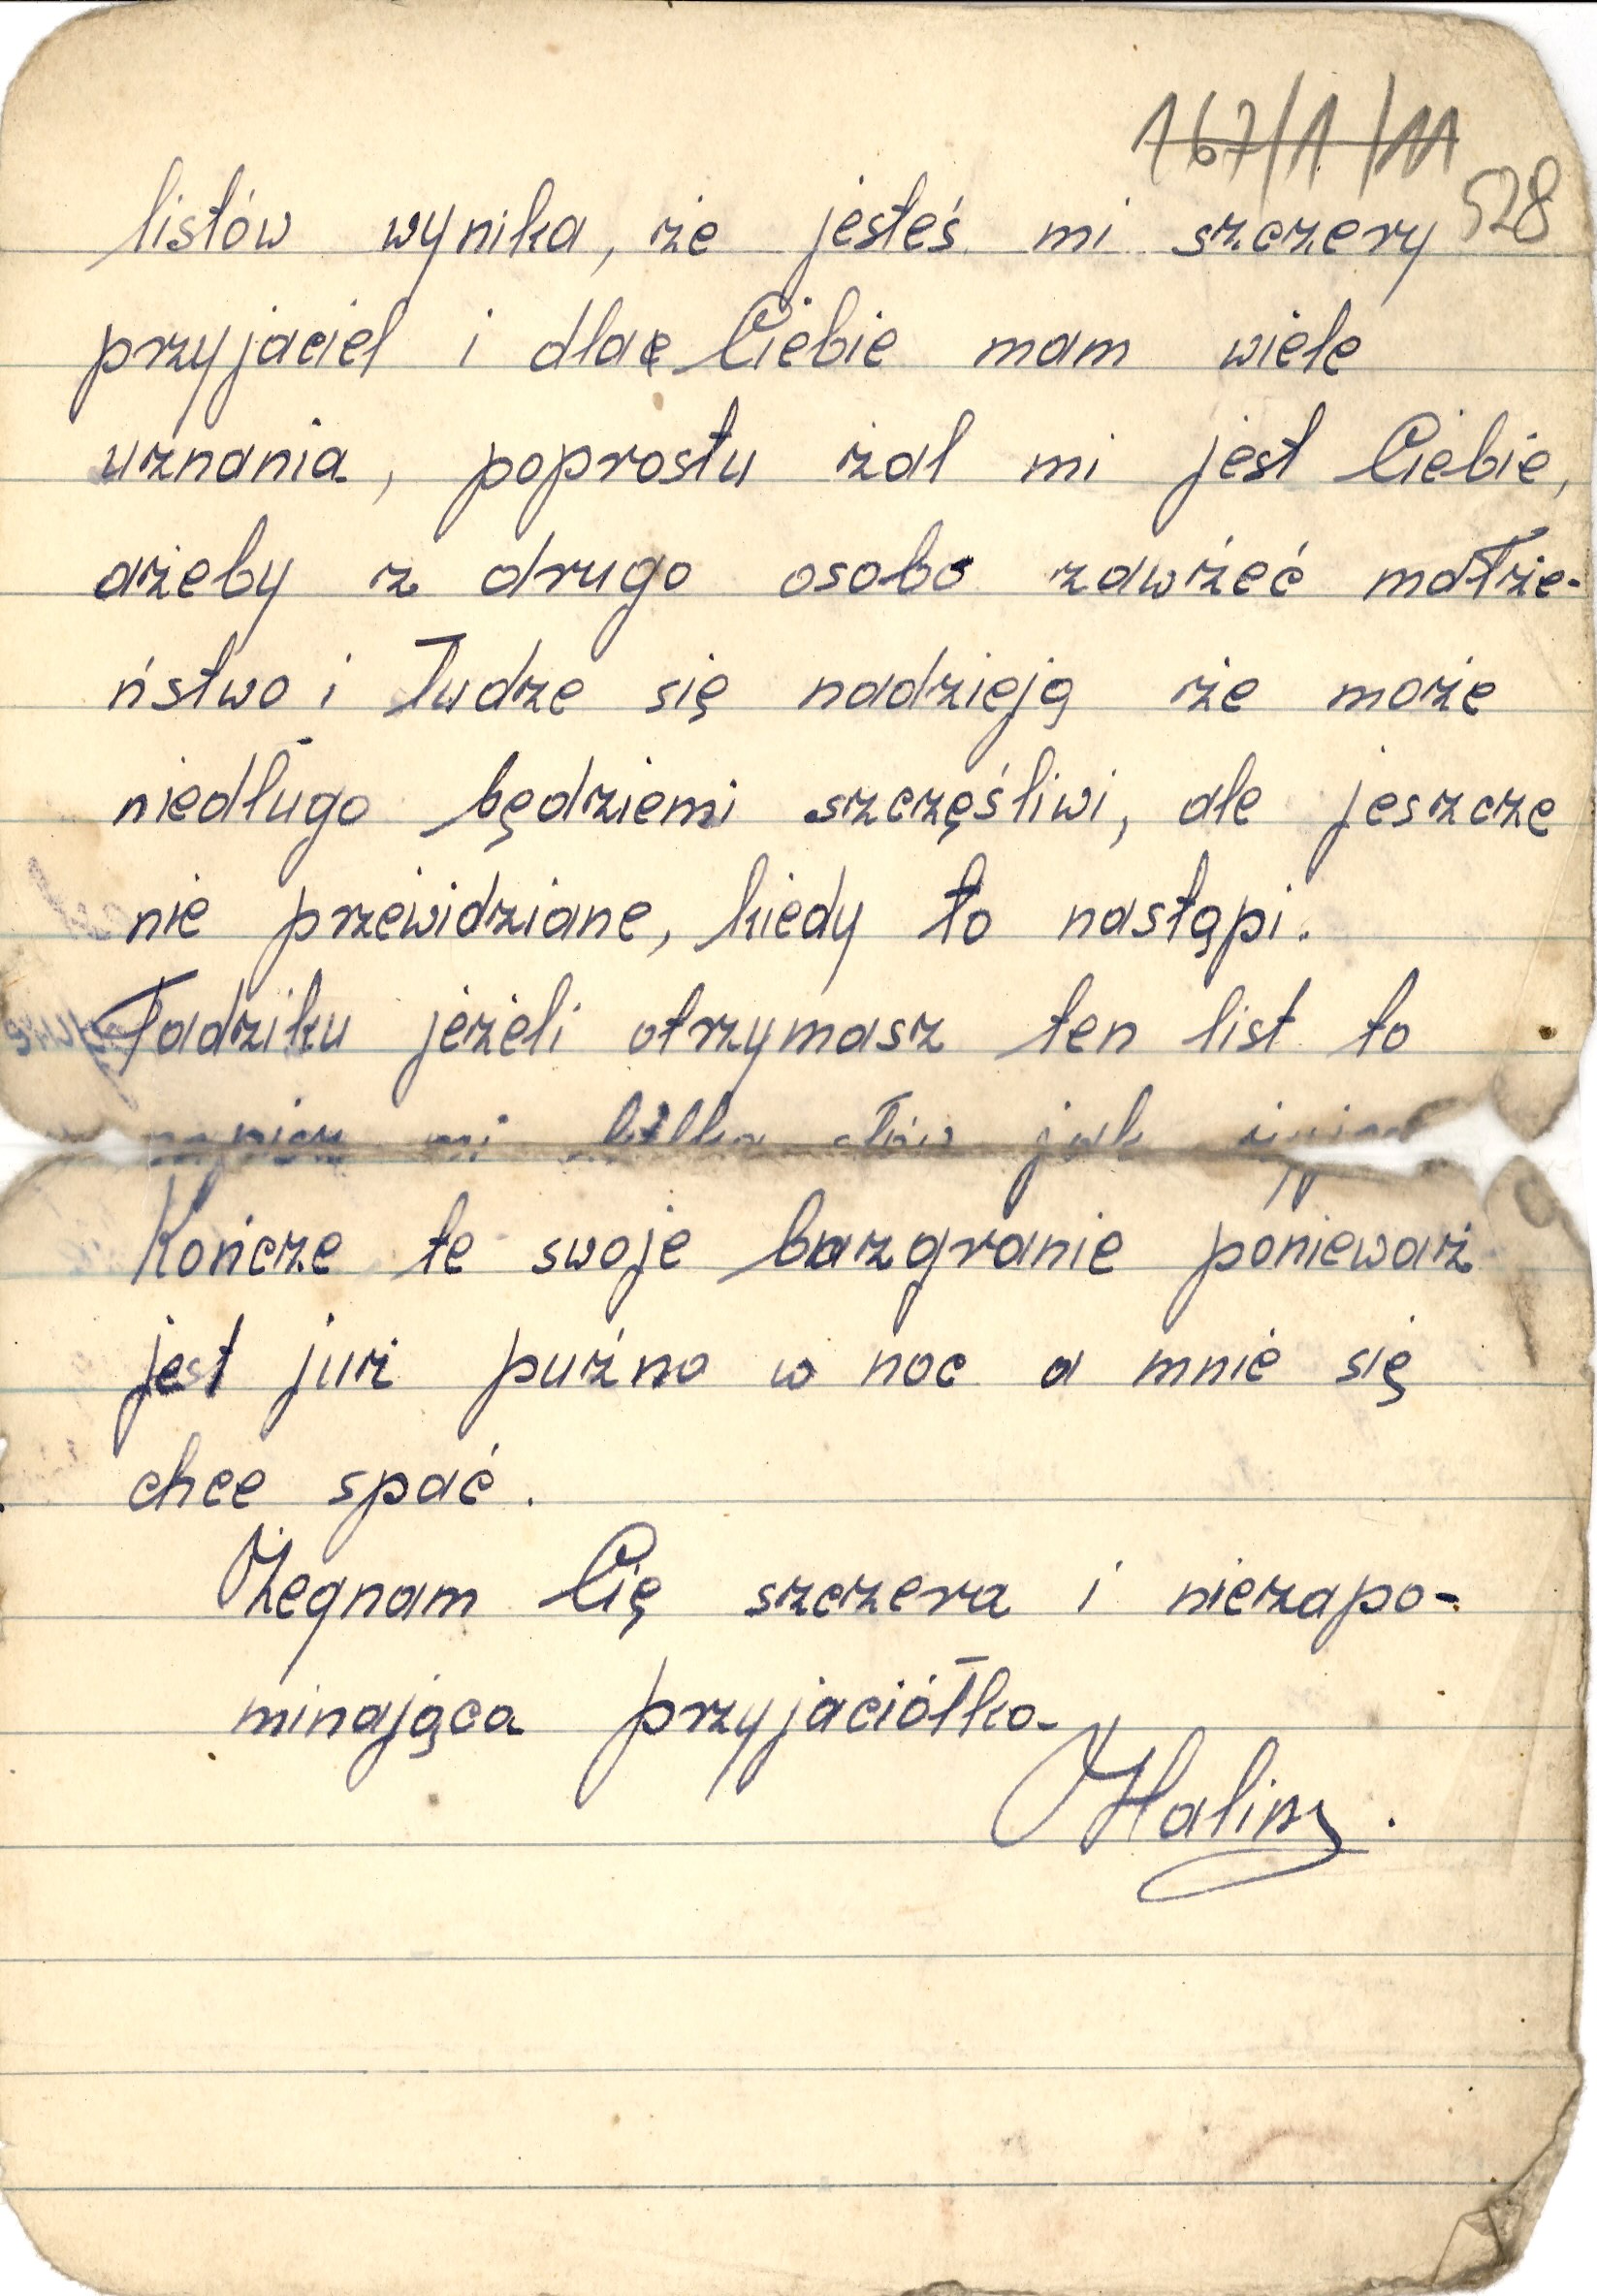 167/1/11
528
listów wynika, że jesteś mi szczery
przyjaciel i dlac Ciebie mam wiele
uznania, poprostu żal mi jest Ciebie,
ażeby z drugo osobo zawżeć małże-
ństwo i Łudze się nadzieją że może
niedługo będziemi szczęśliwi, ale jeszcze
nie przewidziane, kiedy to nastąpi.
Tadziku jeżeli otrzymasz ten list to
napisz mi kilka słów jak
Kończe te swoje bazgranie ponieważ
jest już puźno w noc a mnie się
chce spać.
Żegnam Cię szczera i niezapo-
minająca przyjaciółka-
Halina.